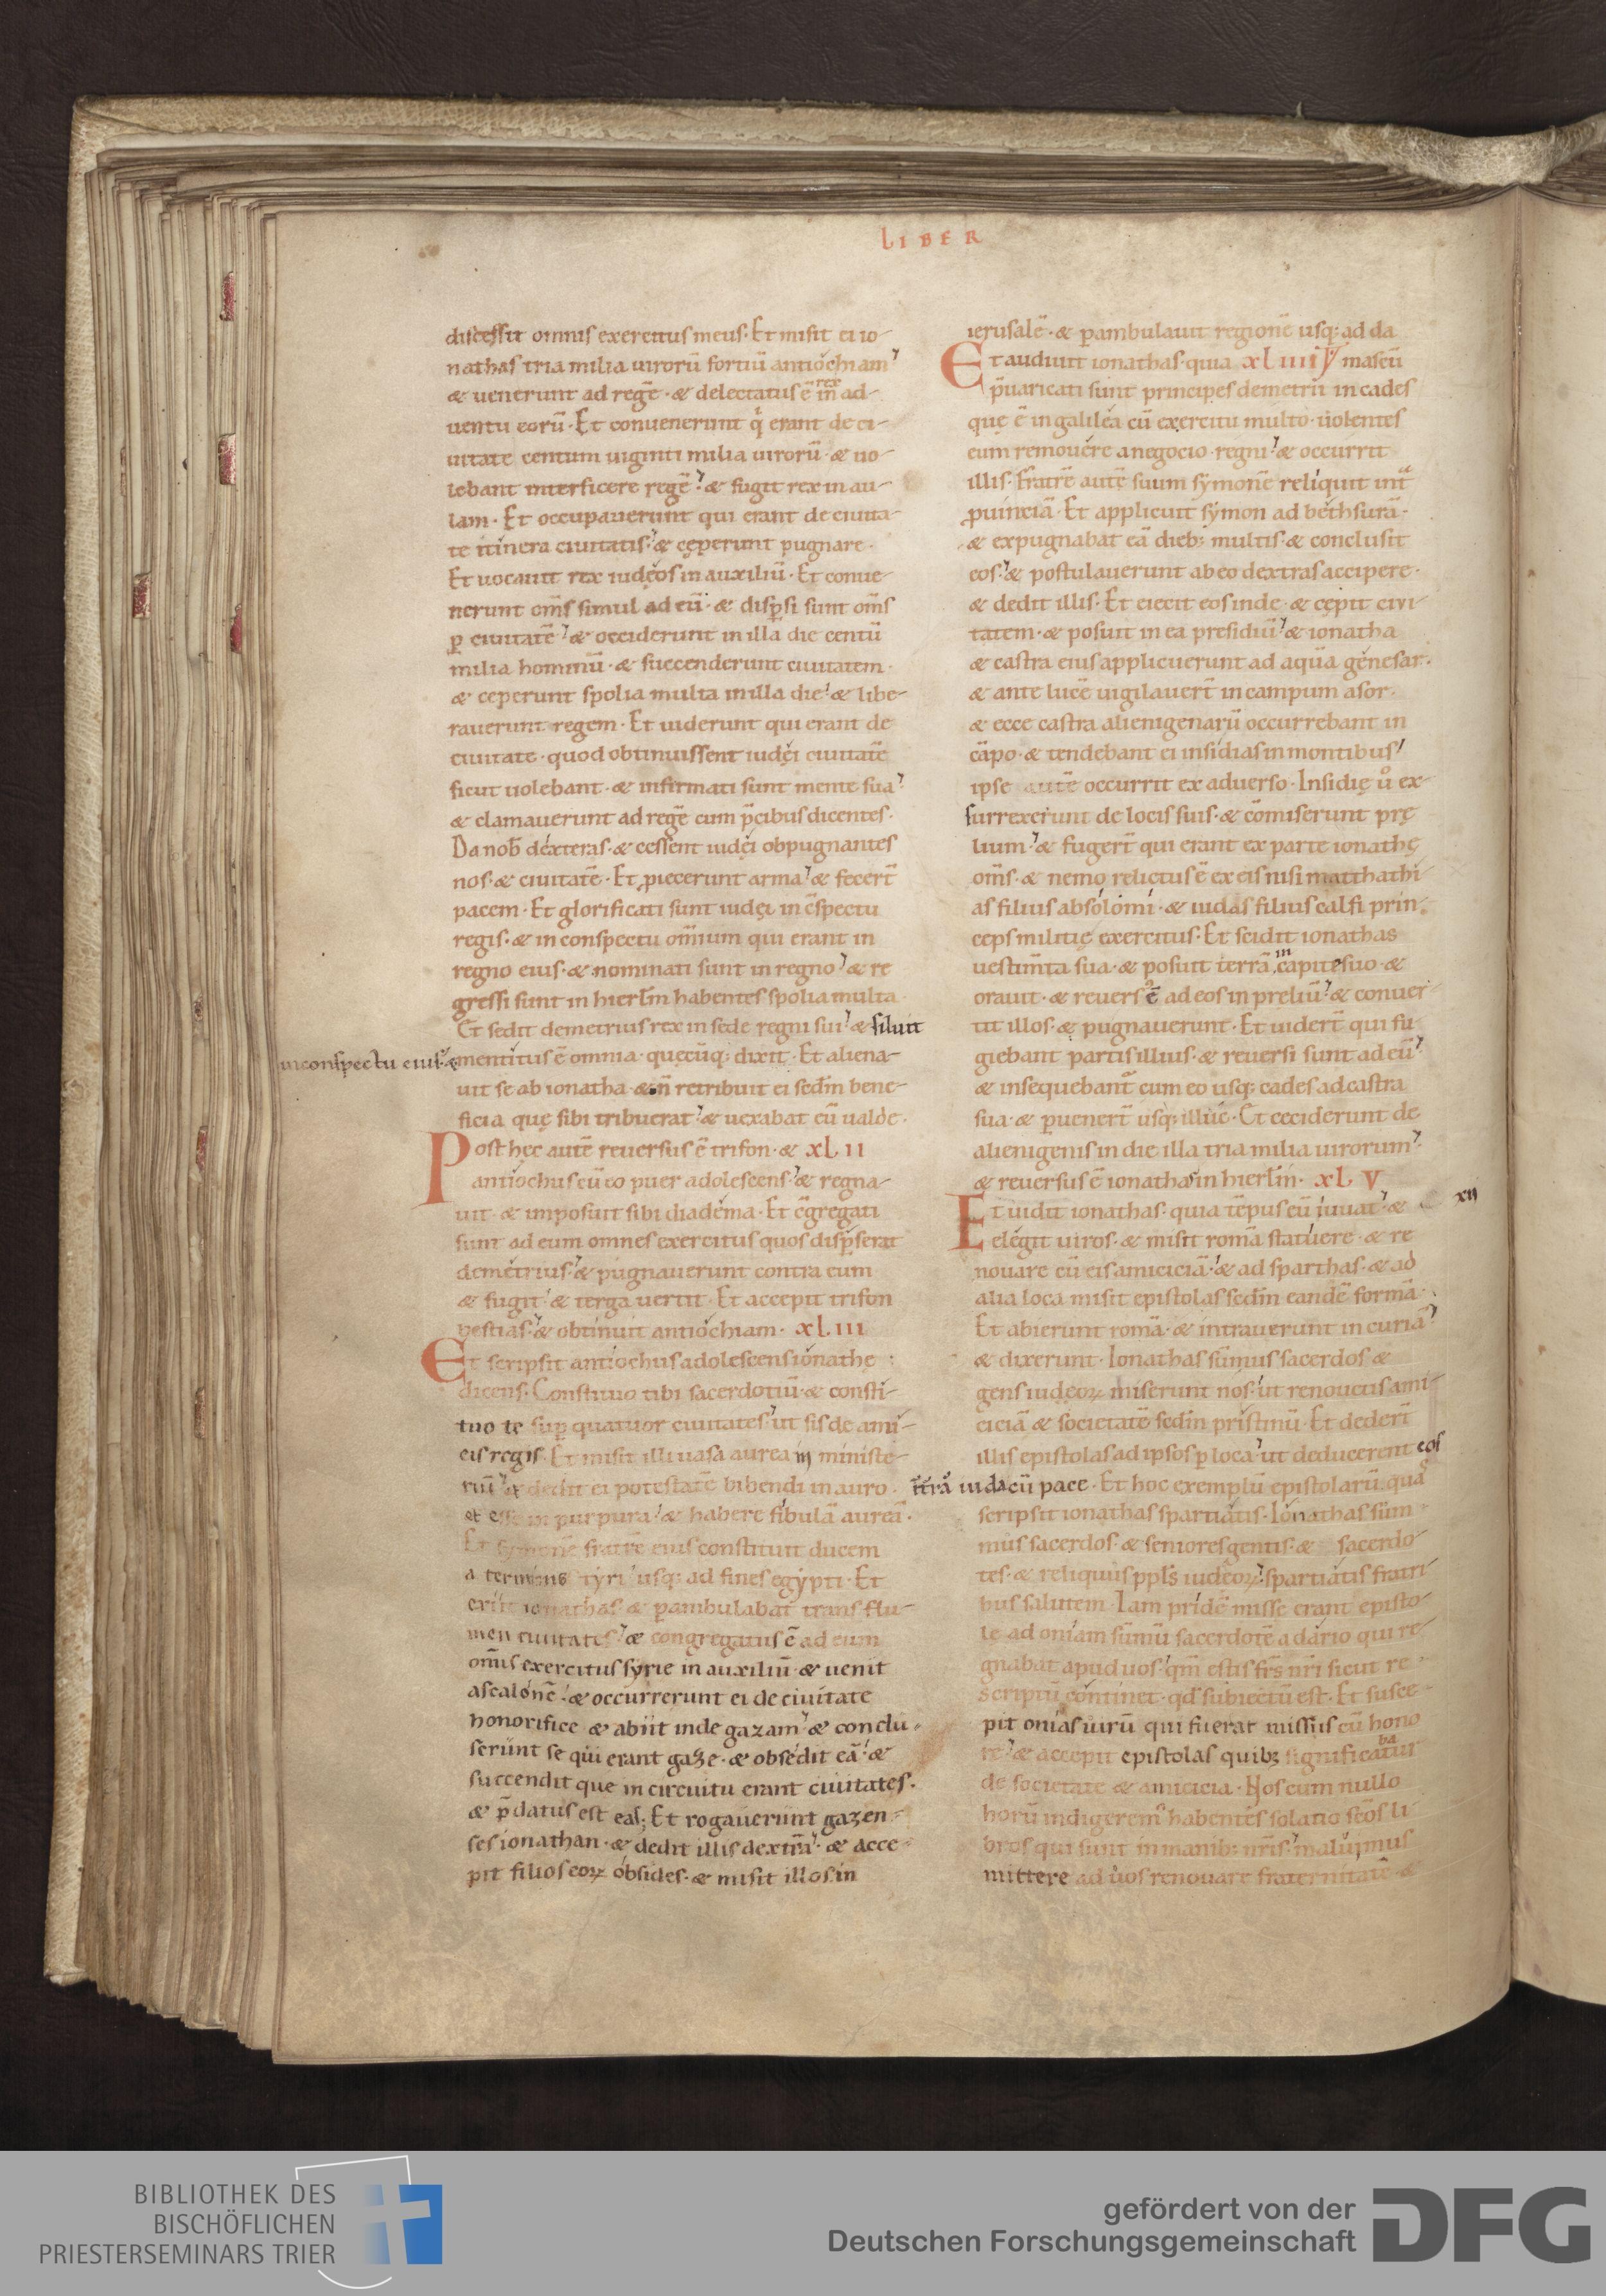 LIBER
discessit omnis exercitus meus. Et misit ei io-
nathas tria milia uirorū fortiū antiochiam
& uenerunt ad regē. & delectatus ē rex in ad-
uentu eorū. Et conuenerunt qⁱ erant de ci-
uitate centum uiginti milia uirorū & uo-
lebant interficere regē. & fugit rex in au-
lam. Et occupauerunt qui erant de ciuita-
te itinera ciuitatis. & cęperunt pugnare.
Et uocauit rex iudęos in auxiliū. Et conue-
nerunt om̄s simul ad eū. & disꝑsi sunt om̄s
ꝑ ciuitatē & occiderunt in illa die centū
milia hominū. & succenderunt ciuitatem.
& ceperunt spolia multa in illa die. & libe-
rauerunt regem. Et uiderunt qui erant de
ciuitate. quod obtinuissent iudęi ciuitatē
sicut uolebant. & infirmati sunt mente sua
& clamauerunt ad regē cum p̄cibus dicentes.
Da nob̄ dexteras. & cessent iudęi obpugnantes
nos. & ciuitatē. Et ꝓiecerunt arma. & fecer̄t
pacem. Et glorificati sunt iudęi in c̄spectu
regis. & in conspectu om̄ium qui erant in
regno eius. & nominati sunt in regno. & re
gressi sunt in hierl̄m habentes spolia multa.
Et sedit demetrius rex in sede regni sui. & siluit
in conspectu eius. &
mentitus ē omnia. quęcūq; dixit. Et aliena-
uit se ab ionatha. & n̄ retribuit ei sed̄m bene-
ficia quę sibi tribuerat. & uexabat eū ualde.
Post hęc autē reuersus ē trifon. & XLII
antiochus cū eo puer adolescens. & regna-
uit. & imposuit sibi diadema. Et c̄gregati
sunt ad eum omnes exercitus quos disꝑserat
demetrius. & pugnauerunt contra eum
& fugit. & terga uertit. Et accepit trifon
bestias. & obtinuit antiochiam. XLIII
Et scripsit antiochus adolescens ionathe:
dicens. Constituo tibi sacerdotiū. & consti-
tuo te suꝑ quatuor ciuitates. ut sis de ami-
cis regis. Et misit illi uasa aurea in ministe-
riū. & dedit ei potestatē bibendi in auro.
et esse in purpura. & habere fibulā aureā.
Et symonē fratrē eius constituit ducem
a terminis tyri usq; ad fines egypti. Et
exiit ionathas & ꝑambulabat trans flu-
men ciuitates. & congregatus ē ad eum
om̄is exercitus syrie in auxiliū. & uenit
ascalonē. & occurrerunt ei de ciuitate
honorifice & abiit inde gazam. & conclu-
serunt se qui erant gaze. & obsedit eā. &
succendit que in circuitu erant ciuitates.
& p̄datus est eas; Et rogauerunt gazen-
ses ionathan. & dedit illis dextrā. & acce-
pit filios eoꝝ obsides. & misit illos in
ierusalē. & ꝑambulauit regionē usq; ad da
Et audiuit ionathas. quia XLIIII mascū
p̄uaricati sunt principes demetrii in cades
quę ē in galilea cū exercitu multo. uolentes
eum remouere a negocio regni. & occurrit
illis. Fratrē autē suum symonē reliquit int̄
ꝓuinciā. Et applicuit symon ad bethsurā.
& expugnabat eā dieb; multis. & conclusit
eos. & postulauerunt ab eo dextras accipere.
& dedit illis. Et eiecit eos inde. & cępit ciui-
tatem. & posuit in ea presidiū. & ionatha
& castra eius applicuerunt ad aquā genesar.
& ante lucē uigilauer̄t in campum asor.
& ecce castra alienigenarū occurrebant in
cāpo. & tendebant ei insidias in montibus
ipse autē occurrit ex aduerso. Insidię ů ex-
surrexerunt de locis suis. & cōmiserunt pre
lium. & fuger̄t qui erant ex parte ionathę
om̄s. & nemo relictus ē ex eis nisi matthathi-
as filius absolomi. & iudas filius calfi prin-
ceps militię exercitus. Et scidit ionathas
uestim̄ta sua. & posuit terrā in capite suo. &
orauit. & reuers' ē ad eos in preliū. & conuer-
tit illos. & pugnauerunt. Et uider̄t qui fu-
giebant partis illius. & reuersi sunt ad eū.
& insequebant̄ cum eo usq; cades ad castra
sua. & ꝑuener̄t usq; illuc. Et ceciderunt de
alienigenis in die illa tria milia uirorum.
& reuersus ē ionathas in hierl̄m. XLV
Et uidit ionathas. quia tēpus eū iuuat. & xii
elegit uiros. & misit romā statuere. & re
nouare cū eis amiciciā. & ad sparthas. & ad
alia loca misit epistolas sed̄m eandē formā.
Et abierunt romā. & intrauerunt in curiā
& dixerunt. Ionathas sūmus sacerdos &
gens iudeoꝝ miserunt nos. ut renouetis ami-
ciciā & societatē sed̄m pristinū. Et deder̄t
illis epistolas ad ipsos ꝑ loca. ut deducerent eos
in tr̄ā iuda cū pace. Et hoc exemplū epistolarū. quas
scripsit ionathas spartiatis. Ionathas sum-
mus sacerdos. & seniores gentis. & sacerdo-
tes. & reliquus ppl̄s iudeoꝝ. spartiatis fratri-
bus salutem. Iam pridē misse erant episto-
le ad oniam sūmū sacerdotē a dario qui re-
gnabat apud uos. qm̄ estis fr̄s nr̄i sicut re-
scriptū continet. qd̄ subiectū est. Et susce-
pit onias uirū qui fuerat missus cū hono
re. & accepit epistolas quibꝫ significabatur
de societate & amicicia. Nos cum nullo
horū indigerem' habentes solatio sc̄os li-
bros qui sunt in manib; nr̄is. maluimus
mittere ad uos renouare fraternitatē &
BIBLIOTHEK DES
BISCHÖFLICHEN
PRIESTERSEMINARS TRIER
gefördert von der
Deutschen Forschungsgemeinschaft
DFG